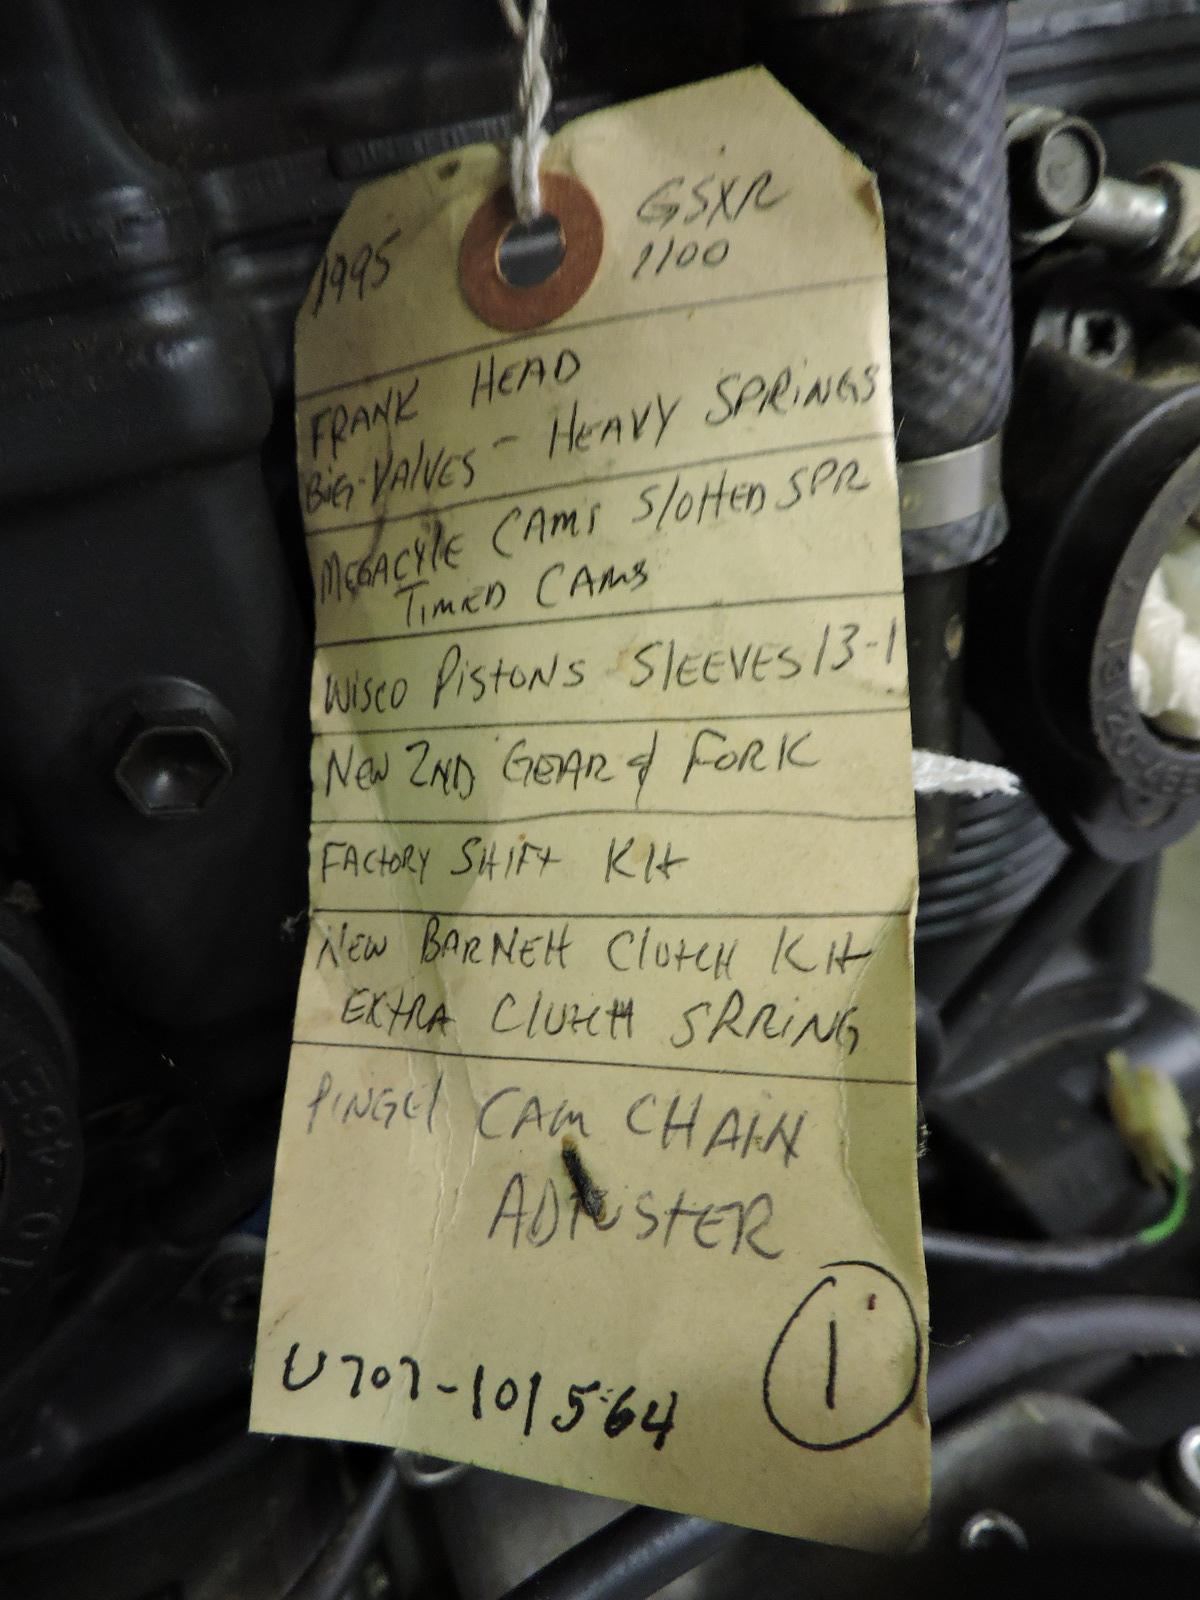 1995
GSXR
1100
FRANK HEAD
BIG-VALVES - HEAVY SPRiNGS
MEGACYlE CAMS SlOttED SPR
TIMED CAMS
WISCO PiStONS SlEEVES 13-1
NEW 2ND GEAR & FORK
FACtORY SHIFt KIt
NEW BARNEtt ClUtCH KIt
EXtRA ClUtCH SRRiNG
PINGEl CAM CHAIN
ADJUStER
1
U707-101564